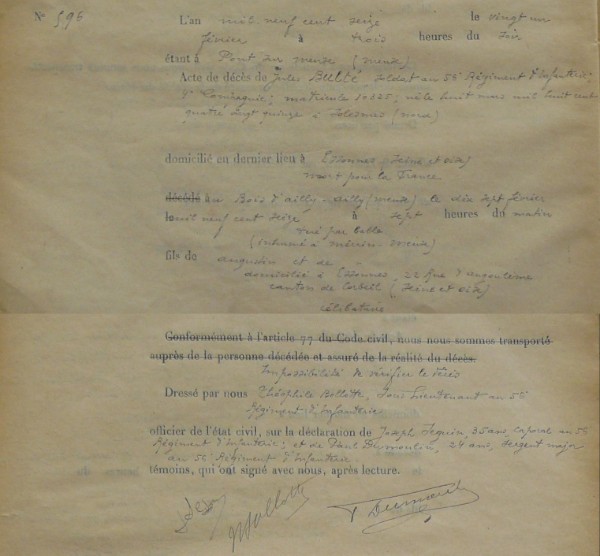 N° 596
L'an mil neuf cent seize le vingt un
février à trois heures du soir
étant à Pont sur meuse (meuse)
Acte de décès de Jules soldat au 55e Régiment d'Infanterie;
Compagnie; matricule né le huit mars mil huit cent
quatre vingt quinze à Solesmes (nord)
domicilié en dernier lieu à Essonnes (Seine et oise)
mort pour la France
décédé au Bois d'ailly - ailly (meuse) le dix sept février
le mil neuf cent seize à sept heures du matin
tué par balle
(inhumé à mécrin meuse)
fils de augustin et de
domicilié à Essonnes, 22 Rue d'angoulème
canton de Corbeil (Seine et oise)
célibataire
Conformément à l'article 77 du Code civil, nous nous sommes transporté
auprès de la personne décédée et assuré de la réalité du décès.
Impossibilité de vérifier le décès
Dressé par nous Théophile Sous Lieutenant au 55
Régiment d'Infanterie
officier de l'état civil, sur la déclaration de Joseph 35 ans caporal au 55
Régiment d'Infanterie; et de Paul Dumoulin, 24 ans, sergent major
au 55 Régiment d'Infanterie
témoins, qui ont signé avec nous, après lecture.